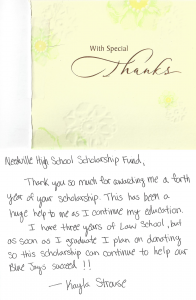 With Special
Thanks
Needville High School Scholarship Fund,
Thank you so much for awarding me a forth
year of your scholarship. This has been a
huge help to me as I continue my education.
I have three years of Law School, but
as soon as I graduate I plan on donating
so this scholarship can continue to help our
Blue Jays succeed!!
— Kayla Strause